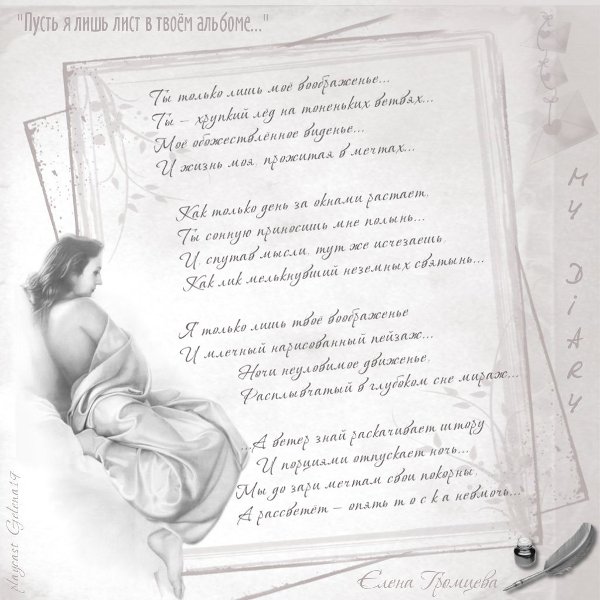 "Пусть я лишь лист в твоём альбоме..."
Ты только лишь моё воображенье...
Ты – хрупкий лёд на тоненьких ветвях...
Моё обожествлённое виденье...
И жизнь моя, прожитая в мечтах...
Как только день за окнами растает,
Ты сонную приносишь мне полынь...
И, спутав мысли, тут же исчезаешь,
Как лик мелькнувший неземных святынь...
Я только лишь твоё воображенье
И млечный нарисованный пейзаж...
Ночи неуловимое движенье,
Расплывчатый в глубоком сне мираж...
...А ветер знай раскачивает штору
И порциями отпускает ночь...
Мы до зари мечтам свои покорны,
А рассветёт – опять т о с к а невмочь...
Елена Громцева
MY DiARY
playcast Gelena19